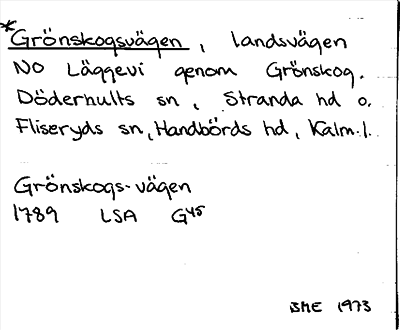 *Grönskogsvägen, landsvägen
NO Läggevi genom Grönskog.
Döderhults sn, Stranda hd o.
Fliseryds sn, Handbörds hd, Kalm. l.
Grönskogs-vägen
1789 LSA G45
BME 1973